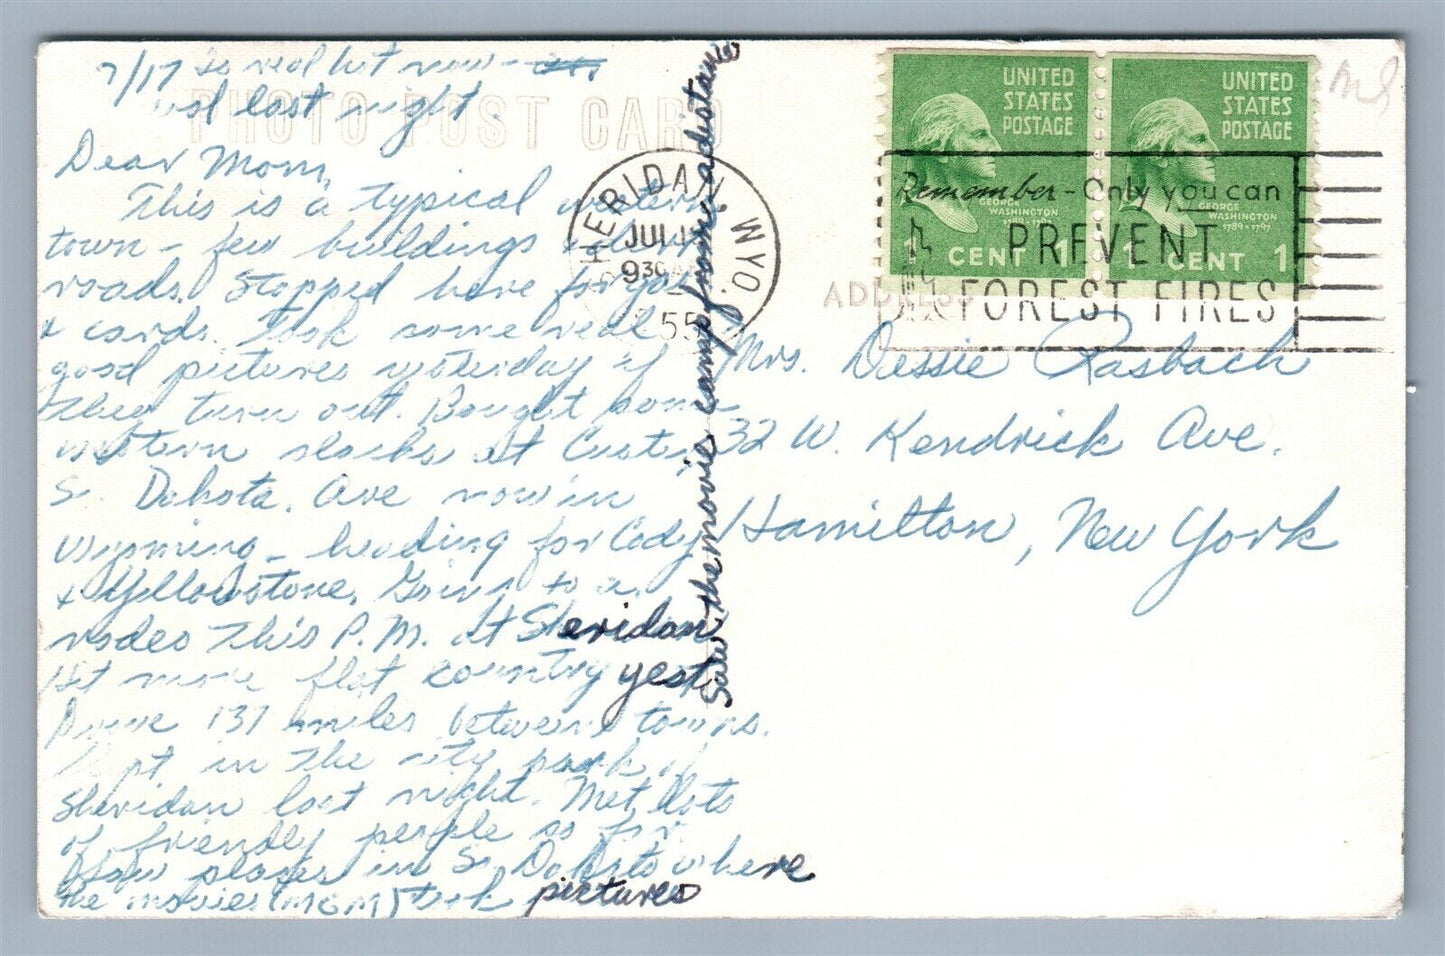 7/17 Is real hot now -
cool last night.
PHOTO POST CARD
Dear Mom,
This is a typical western
town - few buildings
roads. Stopped here for gas
& cards. Took some real
good pictures yesterday if
they turn out. Bought some
western slacks at Custer,
S. Dakota. Are now in
Wyoming - heading for Cody
& Yellowstone. Going to a
rodeo this P.M. at Sheridan
Hit more flat country yest.
Drove 137 miles between towns.
Slept in the city park of
Sheridan last night. Met lots
of friendly people so far.
Saw places in S. Dakota where
the movies (MGM) took pictures
Saw the movie camp from a distance
SHERIDAN WYO.
JUL
9 30 AM
1955
UNITED STATES POSTAGE
GEORGE WASHINGTON
1789-1797
1 CENT 1
UNITED STATES POSTAGE
GEORGE WASHINGTON
1789-1797
1 CENT 1
Remember - Only you can
PREVENT
FOREST FIRES
ADDRESS
Mrs. Dessie Rasbach
32 W. Kendrick Ave.
Hamilton, New York